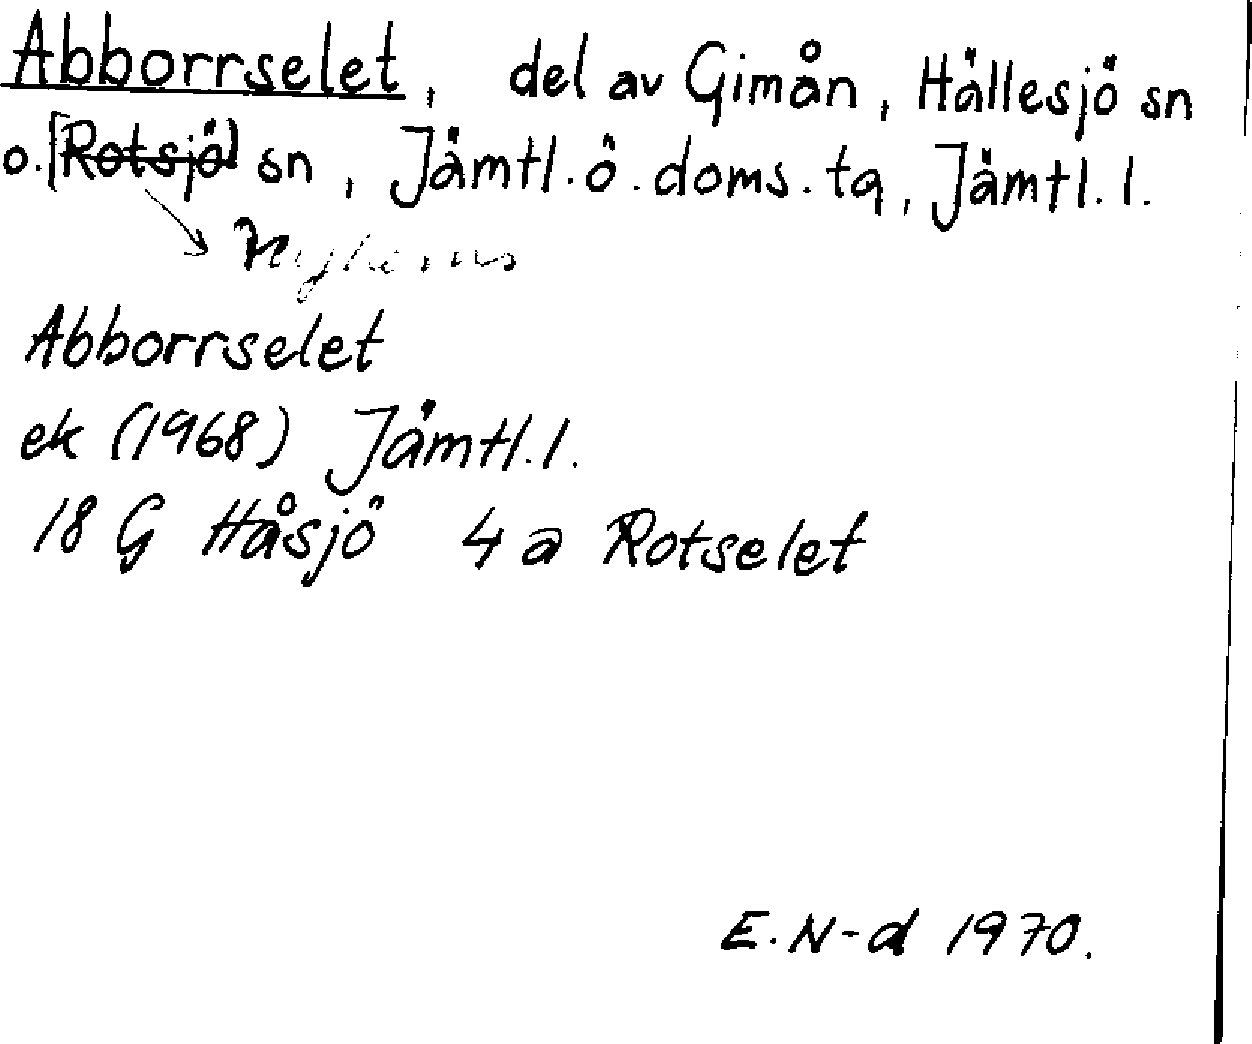 Abborrselet, del av Gimån, Hällesjö sn
o. [Rotsjö] sn, Jämtl. ö. doms. tg, Jämtl. l.
Nyhems
Abborrselet
ek (1968) Jämtl. l.
18 G Håsjö 4 a Rotselet
E. N-d 1970.